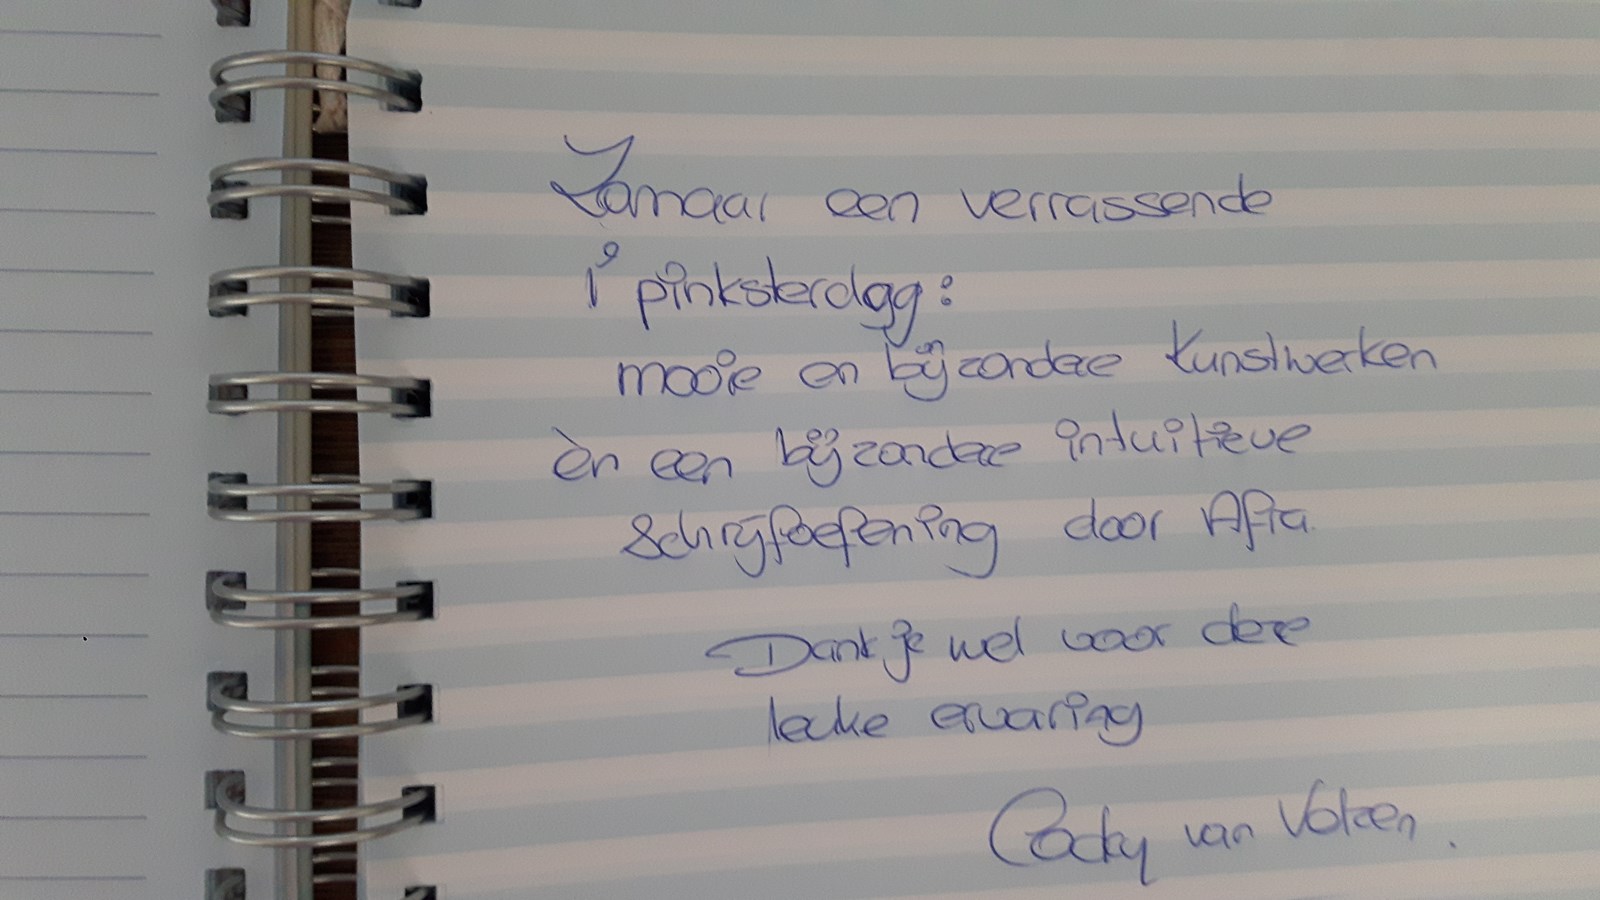 Zomaar een verrassende
1e pinksterdag:
mooie en bijzondere kunstwerken
èn een bijzondere intuitieve
schrijfoefening door Afra.
Dank je wel voor deze
leuke ervaring
Cocky van